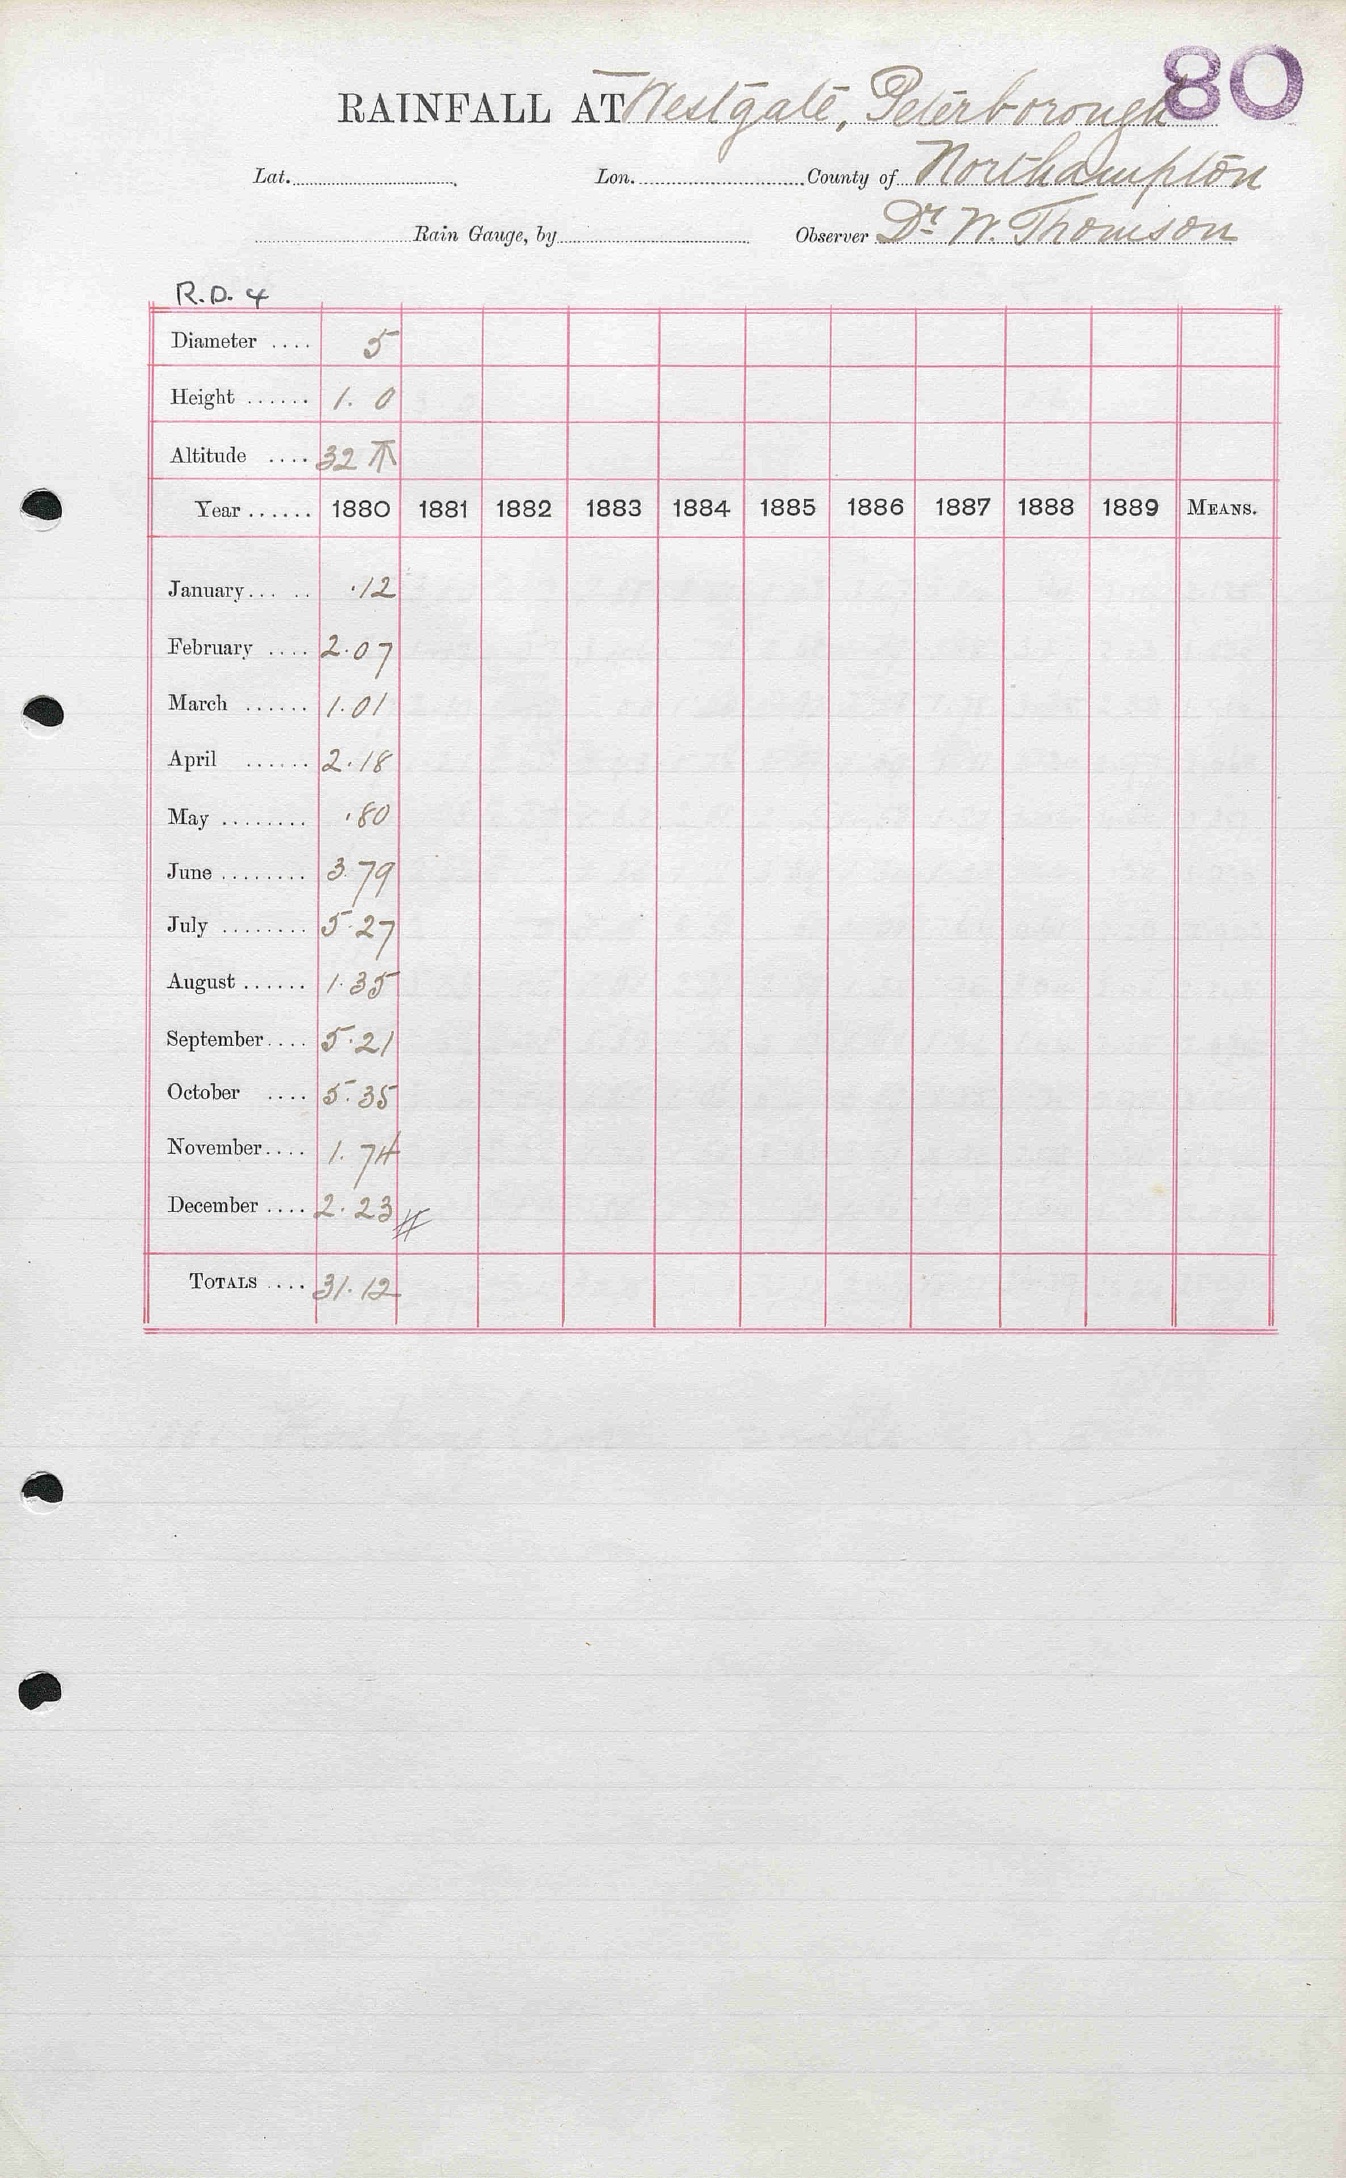 80
RAINFALL AT Westgate, Peterborough
Lat. Lon. County of Northampton
Rain Gauge, by Observer Dr. W. Thomson
R.D. 4
Diameter .... 5
Height ...... 1. 0
Altitude .... 32
Year ...... 1880 1881 1882 1883 1884 1885 1886 1887 1888 1889 MEANS.
January ... .. .12
February .... 2.07
March ...... 1.01
April ...... 2.18
May ........ .80
June ........ 3.79
July ........ 5.27
August ...... 1.35
September .... 5.21
October .... 5.35
November .... 1.74
December .... 2.23
TOTALS .... 31.12